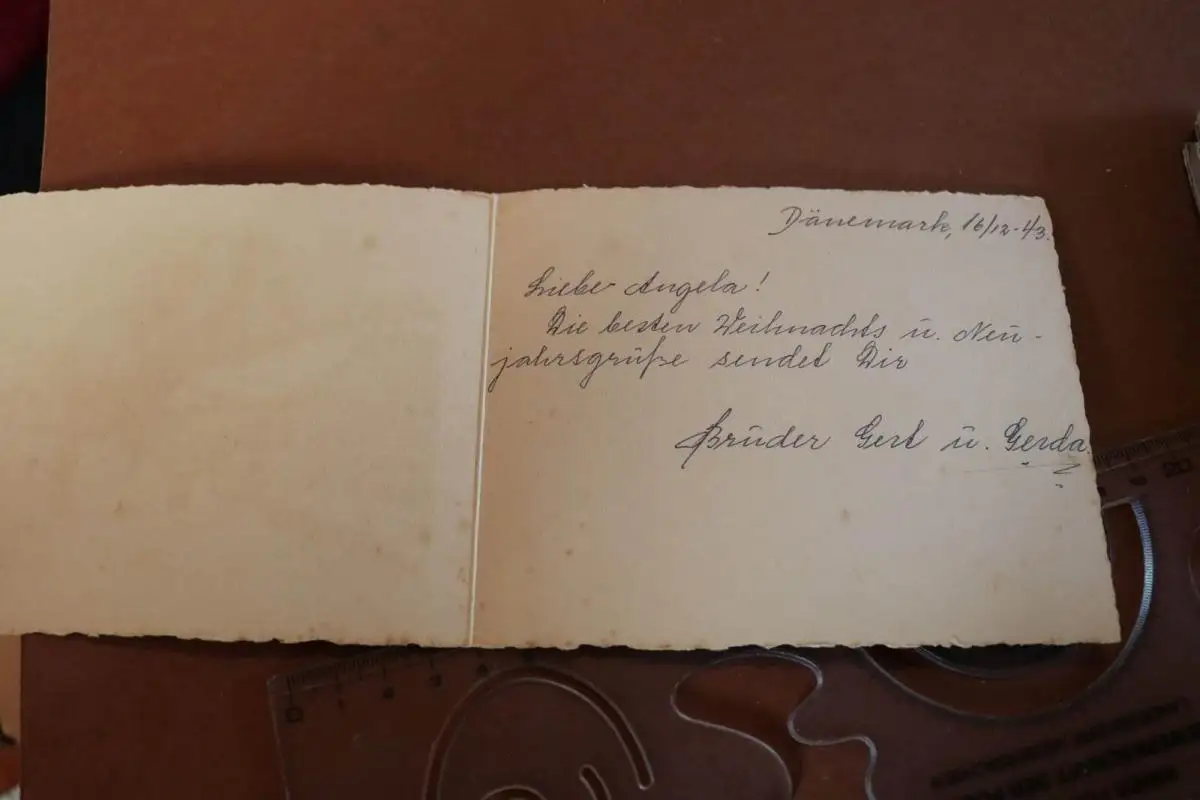 Dänemark, 16/12-43.
Liebe Angela!
Die besten Weihnachts u. Neu-
jahrsgrüße sendet Dir
Bruder Gert u. Gerda